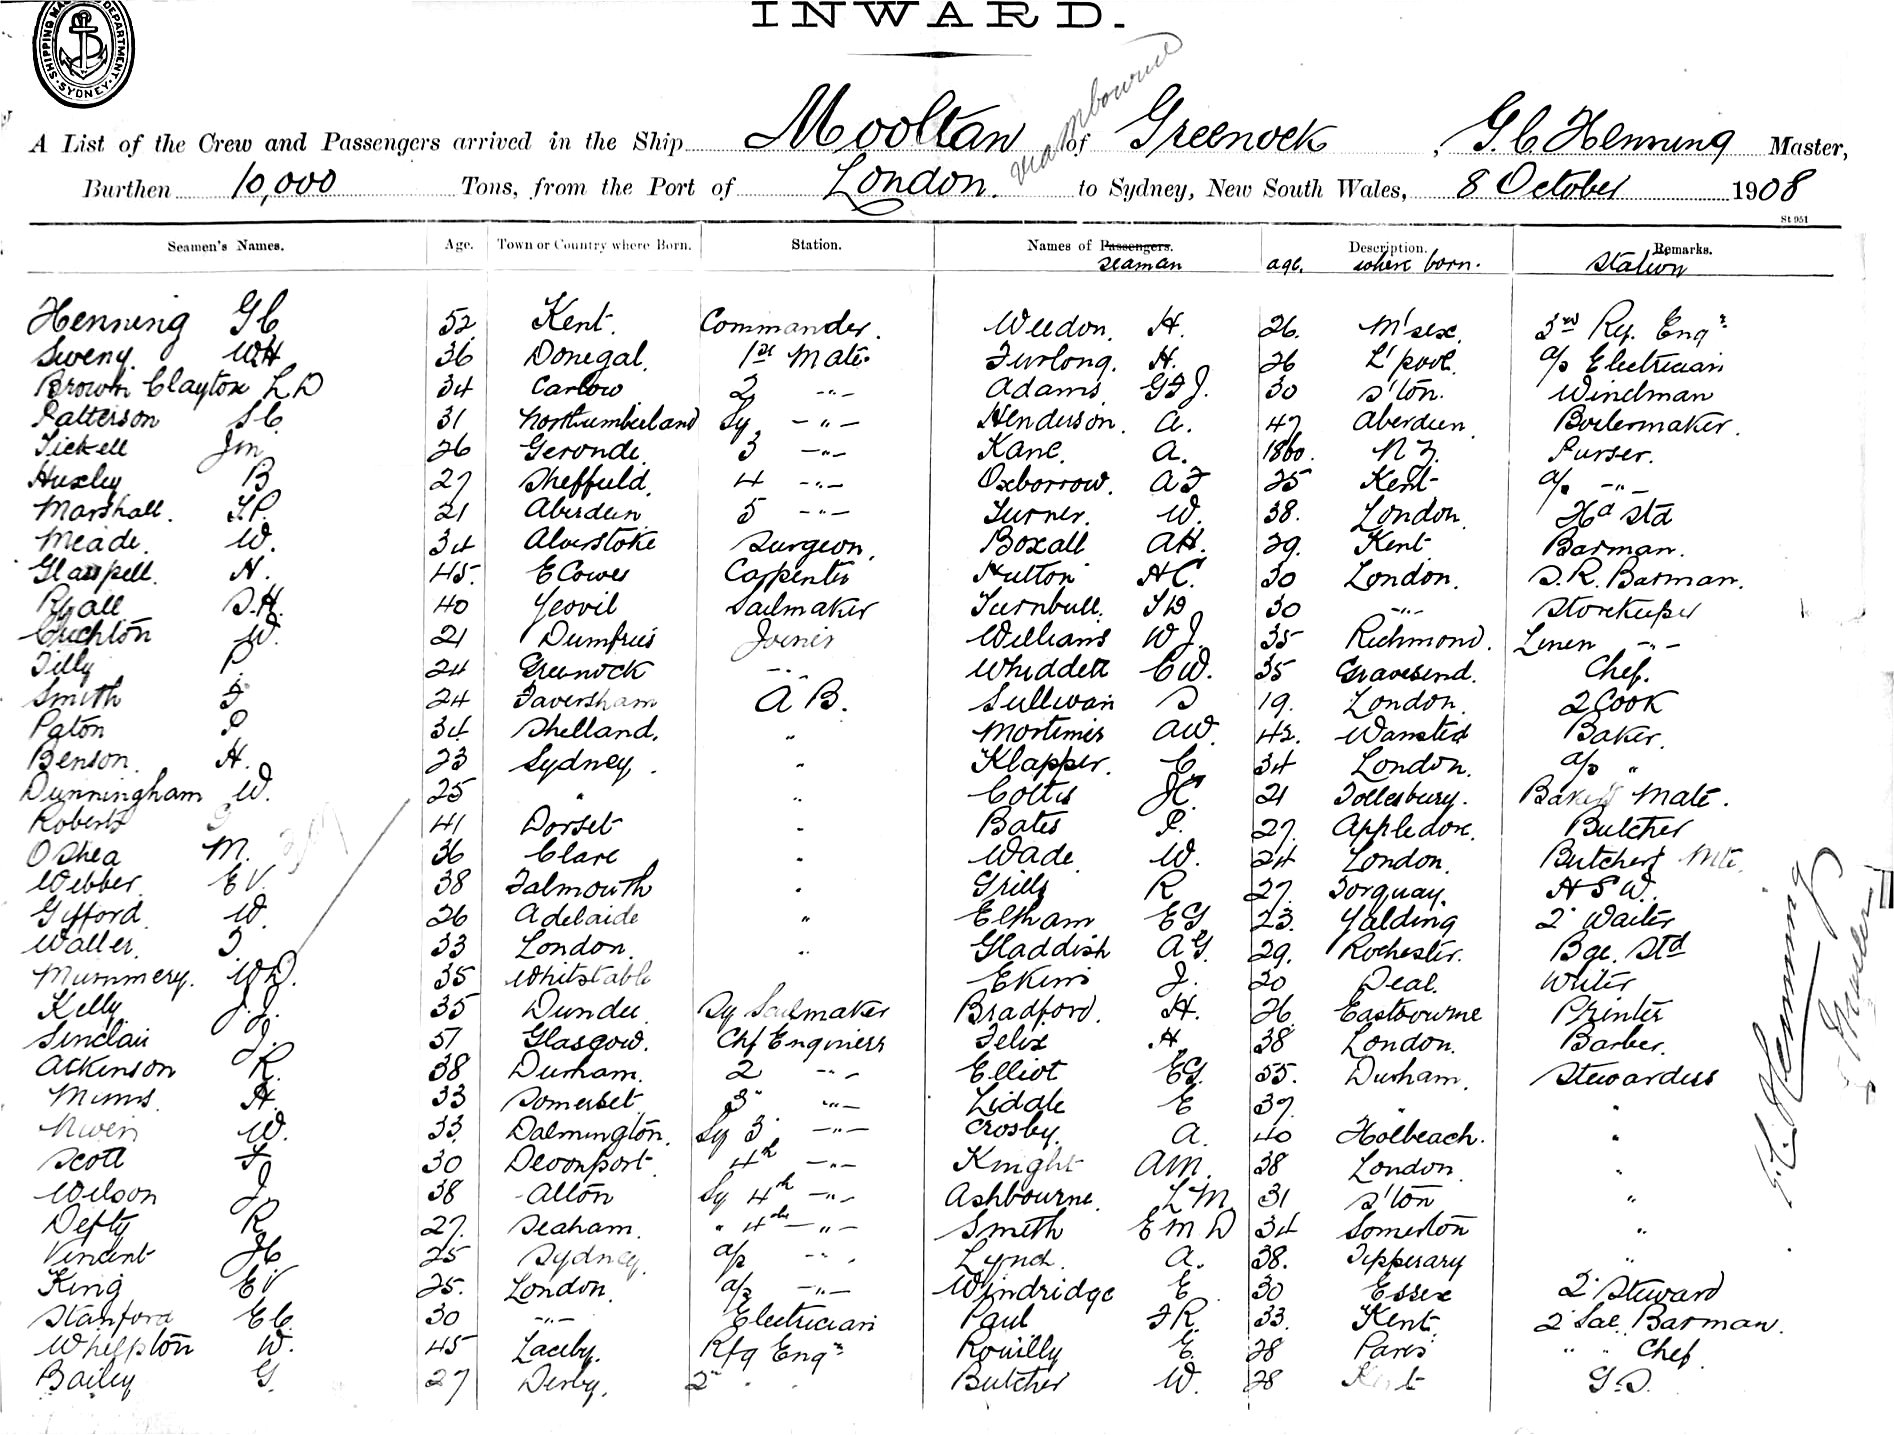 INWARD.
SHIPPING MA DEPARTMENT SYDNEY
via Melbourne
A List of the Crew and Passengers arrived in the Ship Mooltan of Greenock, G.C. Henning Master,
Burthen 10,000 Tons, from the Port of London. to Sydney, New South Wales, 8 October 1908
St 951
Seamen's Names. Age. Town or Country where Born. Station. Names of Passengers. Description. Remarks.
Seaman age. where born. Station
Henning G C 52 Kent. Commander. Weedon. H. 26. M'sex. 3rd Rf. Engr
Sweny. W H 36 Donegal. 1st Mate. Furlong. H. 26 L'pool. a/s Electrician
Brown Clayton L D 34 Carlow 2 -"- Adams. G F J. 30 S'ton. Winchman
Patterson S C. 31 Northumberland Sy. -"- Henderson. A. 47 Aberdeen Boilermaker.
Tickell Jm 26 Geronde. 3 -"- Kane. A. 1860. N Z. Purser.
Huxley B 27 Sheffield. 4 -"- Oxborrow. A F 25 Kent a/s -"-
Marshall. T.P. 21 Aberdeen 5 -"- Turner. W. 38. London. Hd Std
Meade. W. 34 Alverstoke Surgeon. Boxall A H. 29. Kent. Barman.
Glaspell. H. 45. E Cowes Carpenter Hutton H C. 30 London. S.R. Barman.
Ryall S.H. 40 Yeovil Sailmaker Turnbull. T D 30 -"- Storekeeper
Crichton W. 21 Dumfries Joiner Williams W J. 35 Richmond. Linen -"-
Tilly P 24 Greenock -"- Whiddett C W. 35 Gravesend. Chef.
Smith F 24 Faversham A B. Sullivan D 19. London. 2 Cook
Paton P 34 Shelland. " Mortimer A W. 42. Wansted Baker.
Benson. H. 23 Sydney. " Klapper. C 34 London. a/s "
Dunningham W. 25 " " Coltis J C. 21 Tollesbury. Bakers Mate.
Roberts 41 Dorset " Bates P. 27. Appledore. Butcher
O Shea M. 36 Clare " Wade. W. 24 London. Butchers Mte.
Webber. E V. 38 Falmouth " Grills R 27. Torquay. H S W.
Gifford. W. 26 Adelaide " Eltham E G 23. Yalding 2 Waiter
Waller. T. 33 London. " Gladdish A G. 29. Rochester. Bge. Std
Mummery. W D. 35 Whitstable Ekins J. 20 Deal. Writer
Kelly. J.J. 35 Dundee. Sy Sailmaker Bradford. H. 26 Eastbourne Printer
Sinclair J. 57 Glasgow. Chf Engineer Felix H 38 London. Barber.
Atkinson R. 38 Durham. 2 -"- Elliot E G. 55. Durham. Stewardess
Mimms. H. 33 Somerset 3 -"- Liddle E 37. " "
Niven W. 33 Dalmington. Sy 3 -"- Crosby. A. 40 Holbeach. "
Scott F 30 Devonport. 4th -"- Knight A M. 38 London "
Wilson J 38 Alton Sy 4th -"- Ashbourne. L M. 31 S'ton "
Defty R 27. Seaham. " 4th -"- Smith E M D 34 Somerton "
Vincent J C 25 Sydney. a/s -"- Lynch. A. 38. Tipperary "
King E V 25. London. a/s -"- Windridge E 30 Essex 2 Steward
Stanford E C. 30 -"- Electrician Paul F R. 33. Kent. 2 Sal. Barman.
Whelpton W. 45 Laceby. Rfg Engr Rouilly E. 28 Paris " " Chef
Bailey G. 27 Derby. 2 " " Butcher W. 28 Kent G.S.
G.C. Henning
Master